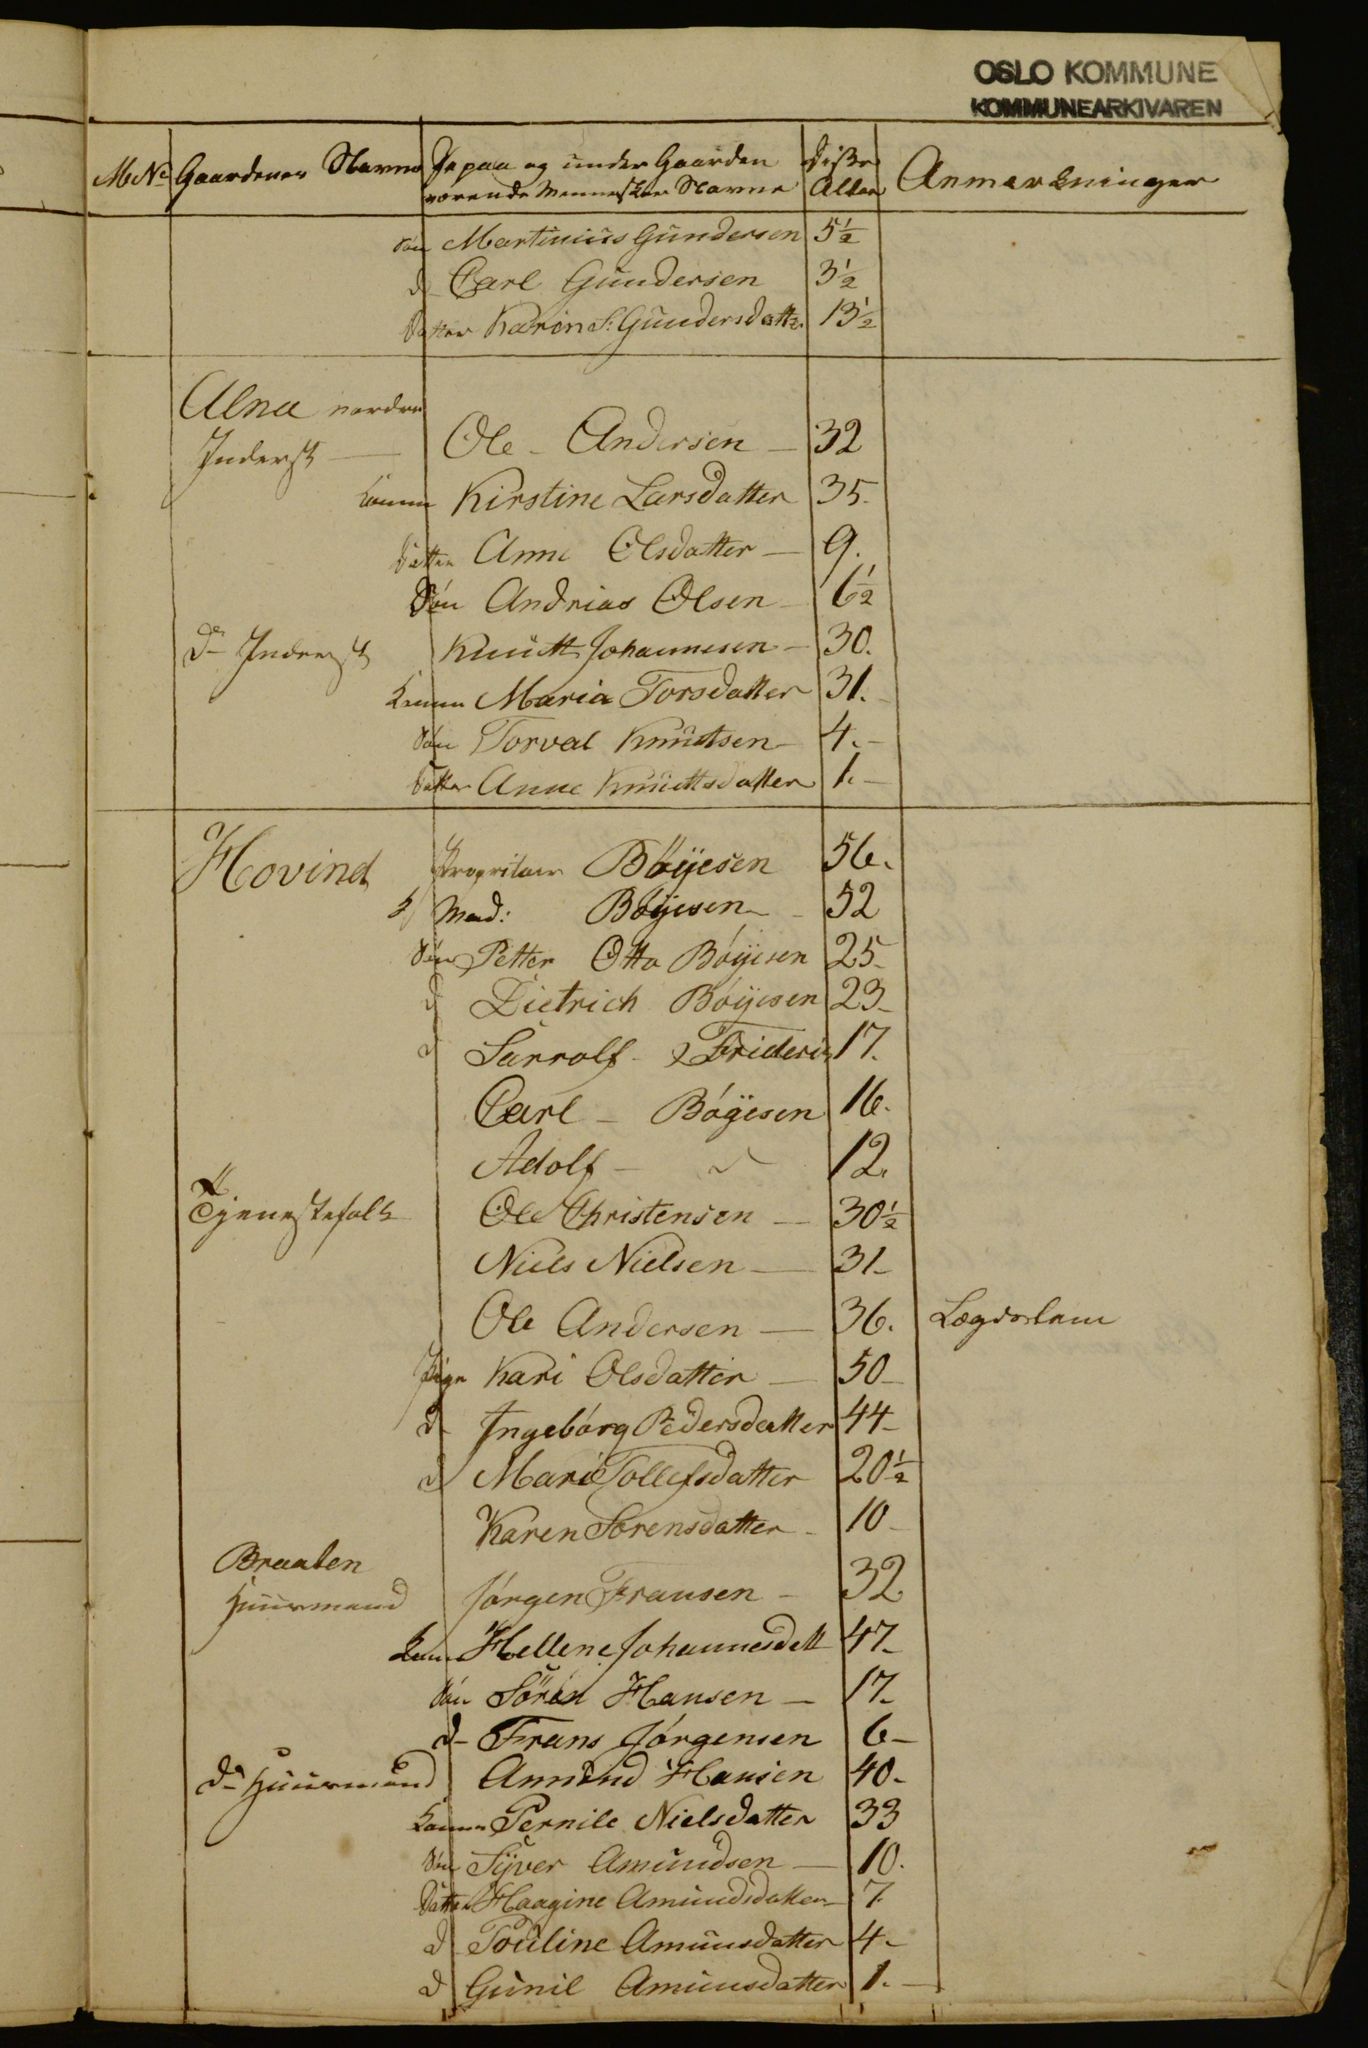 OSLO KOMMUNE
KOMMUNEARKIVAREN
M No Gaardenes Navne De paa og under Gaarden værende Menneskers Navne Disses Alder Anmærkninger
Søn Martinius Gundersen 5 1/2
d Carl Gundersen 3 1/2
Datter Karin S: Gundersdatt. 13 1/2
Alna nordre
Inderst — Ole - Andersen — 32
Konen Kirstine Larsdatter 35.
Datter Anne Olsdatter — 9.
Søn Andrias Olsen — 6 1/2
Do Inderst Knutt Johannesen — 30.
Konen Maria Torsdatter 31.
Søn Torval Knudtsen — 4.
Datter Anne Knudtsdatter 1.
Hovind Propritair Böÿesen 56.
Mad: Böÿesen — 52
Søn Petter Otto Böÿesen 25
d Dietrich Böÿesen 23
d Sarrolf - Frideric 17.
Carl - Böÿesen 16.
Adolf — 12.
Tjenestefolk Ole Christensen — 30 1/2
Niels Nielsen — 31
Ole Andersen — 36. Lægdslem
Pige Kari Olsdatter — 50
d Ingebórg Pedersdatter 44
d Mari Tollefsdatter 20 1/2
Karen Sorensdatter — 10
Braaten
Huusmand Jórgen Fransen — 32
Kone Hellene Johannesdatt 47
Søn Sören Hansen — 17
d Frans Jórgensen 6
Do Huusmand Amund Hansen 40
Konen Pernile Nielsdatter 33
Søn Sÿver Amundsen — 10.
Datter Haagine Amundsdatter 7
d Pouline Amunsdatter 4
d Gunil Amunsdatter 1.